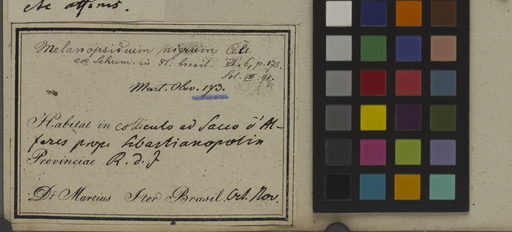 affinis.
Melanopsidium nigrum Cels
ex Schum. in Fl. brasil. VI, 6, p. 175.
Mart. Obs. 173.
Habitat in colliculo ad Sacco d'Al-
feres prope Sebastianopolin
Provinciae R. d. J
Dr Martius Iter Brasil. Oct. Nov.